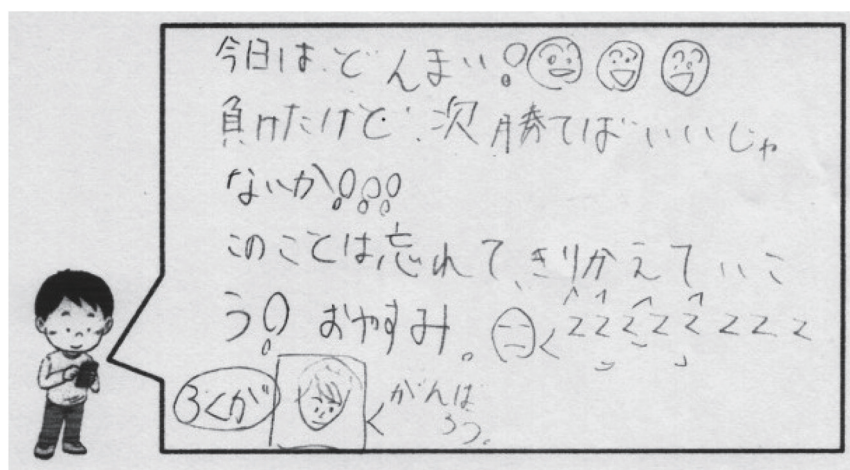 今日は、どんまい!
負けたけど、次勝てばいいじゃ
ないか!!!
このことは忘れて、きりかえていこ
う! おやすみ。 zzzzzzzz
ろくが
がんば
ろう。